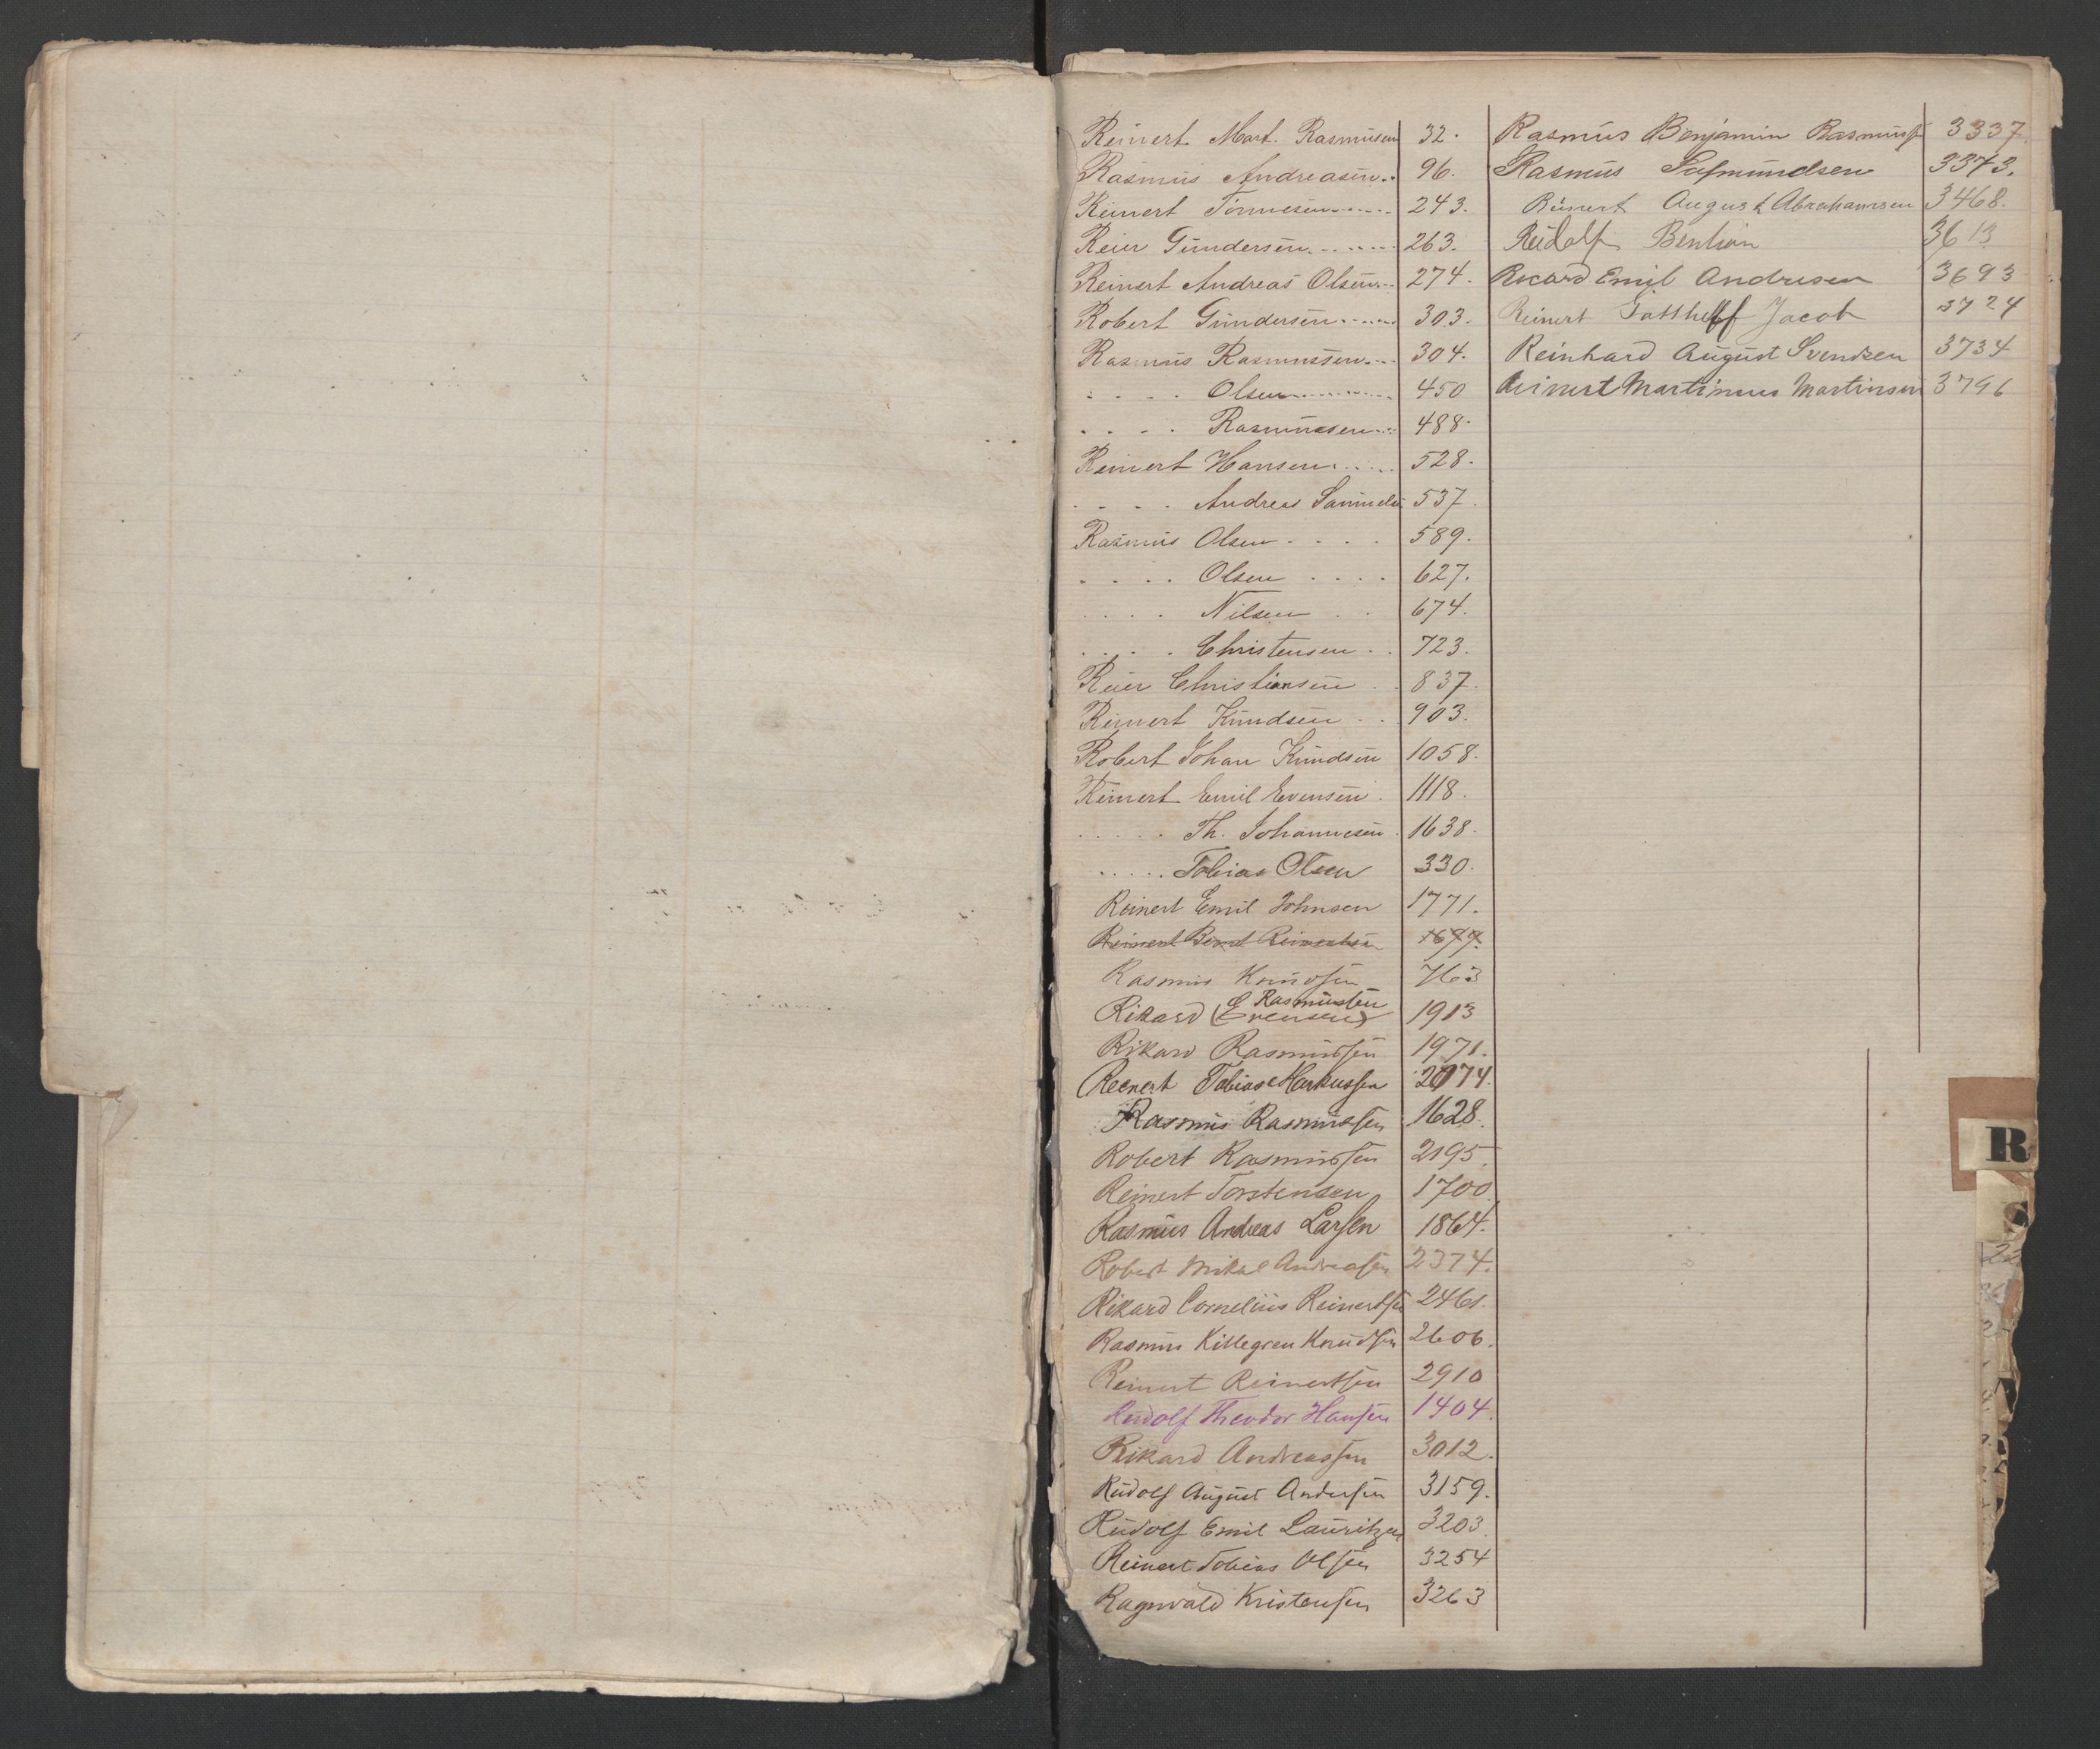 Reinert Mart. Rasmusen 32.
Rasmus Andreasen.. 96.
Reinert Tönnesen........ 243.
Reier Gundersen........ 263.
Reinert Andreas Olsen... 274.
Robert Gundersen....... 303.
Rasmus Rasmussen.... 304.
. . . . Olsen............ 450
. . . . Rasmussen.... 488.
Reinert Hansen...... 528.
. . . . Andreas Samuels 537.
Rasmus Olsen . . . . 589.
. . . . Olsen . . . . 627.
. . . . Nilsen . . 674.
. . . . Christensen . . 723.
Reier Christiansen . . 837.
Reinert Knudsen . . . 903.
Robert Johan Knudsen 1058.
Reinert Emil Evensen . 1118.
. . . . . Th. Johannesen . 1638.
. . . . . Tobias Olsen 330.
Reinert Emil Johnsen 1771.
Reinert Bernt Reinertsen 1699.
Rasmus Knudsen 763
Rasmussen
Rikard (Evensen) 1913
Rikard Rasmussen 1971.
Reinert Tobias Markussen 2074.
Rasmus Rasmussen 1628.
Robert Rasmussen 2195.
Reinert Torstensen 1700
Rasmus Andreas Larsen 1864.
Robert Mikal Andreasen 2374.
Rikard Cornelius Reinertsen 2461.
Rasmus Killegren Knudsen 2606.
Reinert Reinertsen 2910
Rudolf Theodor Hansen 1404.
Rikard Andreassen 3012.
Rudolf August Andersen 3159.
Rudolf Emil Lauritzen 3203.
Reinert Tobias Olsen 3254
Ragnvald Kristensen 3263
Rasmus Benjamin Rasmuss 3337.
Rasmus 3373.
Reinert August Abrahamsen 3468.
Rudolf 3613
Rikard Emil Andresen 3693
Reinert Jacob 3724
Reinhard August Svendsen 3734
Reinert Martinius Martinsen 3796
R
S